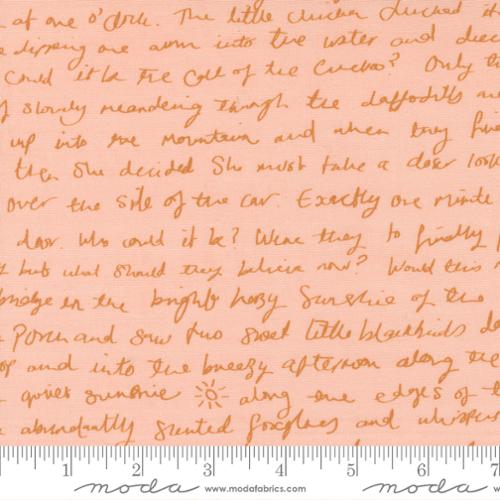 at one o'clock. The little chicken clucked it
dipping one arm into the water and
Could it be the Call of the Cuckoo? Only th
slowly meandering through the daffodils
up into the mountain and when they
then She decided She must take a
over the side of the car. Exactly one minute
door. Who could it be? Were they to finally
but what should they believe now? Would this
bridge in the bright hazy Sunshine of the
Porch and saw two sweet little blackbirds
and into the breezy afternoon along the
quiet sunshine along the edges of
abundantly Scented foxgloves and whisper
1 2 3 4 5 6 7
moda www.modafabrics.com moda